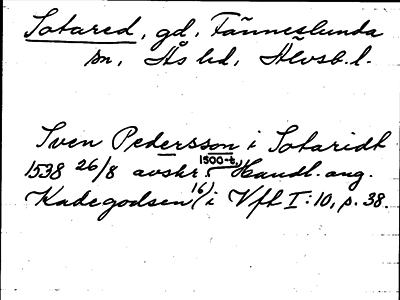 Sotared, gd, Fänneslunda
sn, Ås hd, Älvsb. l.
Sven Pedersson i Sotaridt
1538 26/8 avskr. 1500-t., Handl. ang.
Kadegodsen (16) i Vft I:10, p. 38.